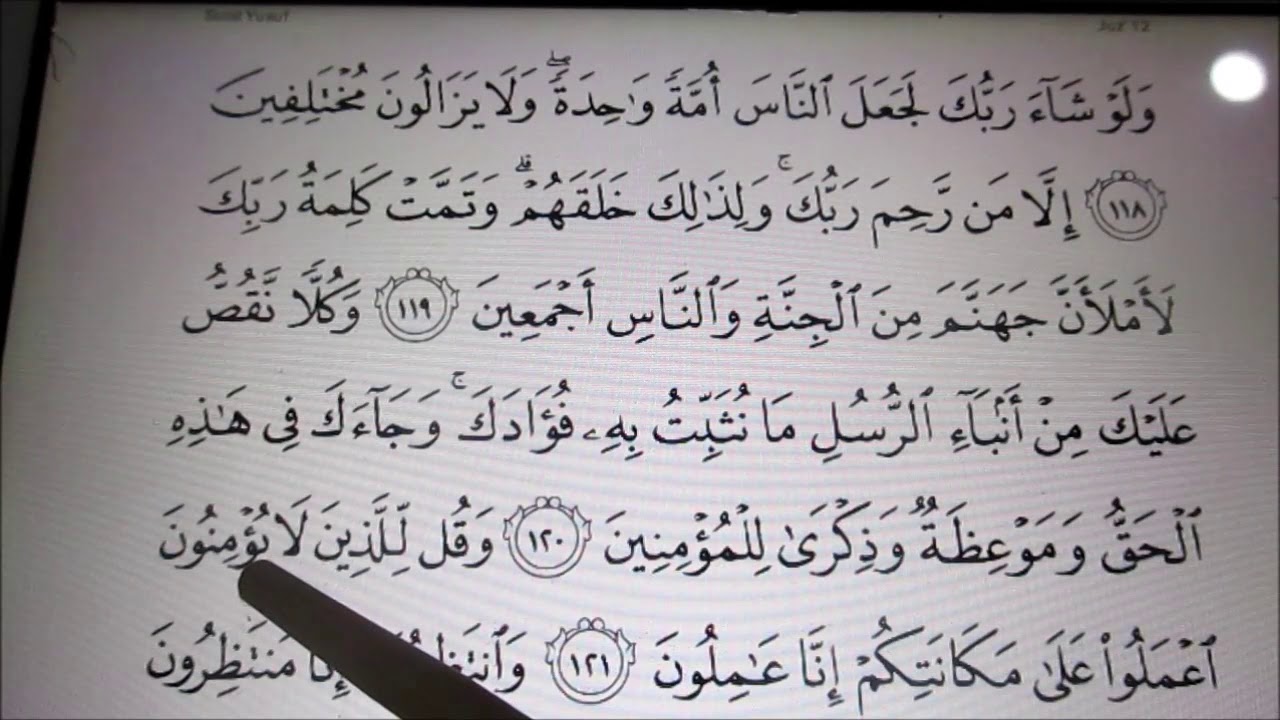 Surat Yusuf
Juz 12
وَلَوْ شَآءَ رَبُّكَ لَجَعَلَ ٱلنَّاسَ أُمَّةً وَٰحِدَةً ۖ وَلَا يَزَالُونَ مُخْتَلِفِينَ
١١٨ إِلَّا مَن رَّحِمَ رَبُّكَ ۚ وَلِذَٰلِكَ خَلَقَهُمْ ۗ وَتَمَّتْ كَلِمَةُ رَبِّكَ
لَأَمْلَأَنَّ جَهَنَّمَ مِنَ ٱلْجِنَّةِ وَٱلنَّاسِ أَجْمَعِينَ ١١٩ وَكُلًّا نَّقُصُّ
عَلَيْكَ مِنْ أَنۢبَآءِ ٱلرُّسُلِ مَا نُثَبِّتُ بِهِۦ فُؤَادَكَ ۚ وَجَآءَكَ فِى هَٰذِهِ
ٱلْحَقُّ وَمَوْعِظَةٌ وَذِكْرَىٰ لِلْمُؤْمِنِينَ ١٢٠ وَقُل لِّلَّذِينَ لَا يُؤْمِنُونَ
ٱعْمَلُوا۟ عَلَىٰ مَكَانَتِكُمْ إِنَّا عَٰمِلُونَ ١٢١ إِنَّا مُنتَظِرُونَ